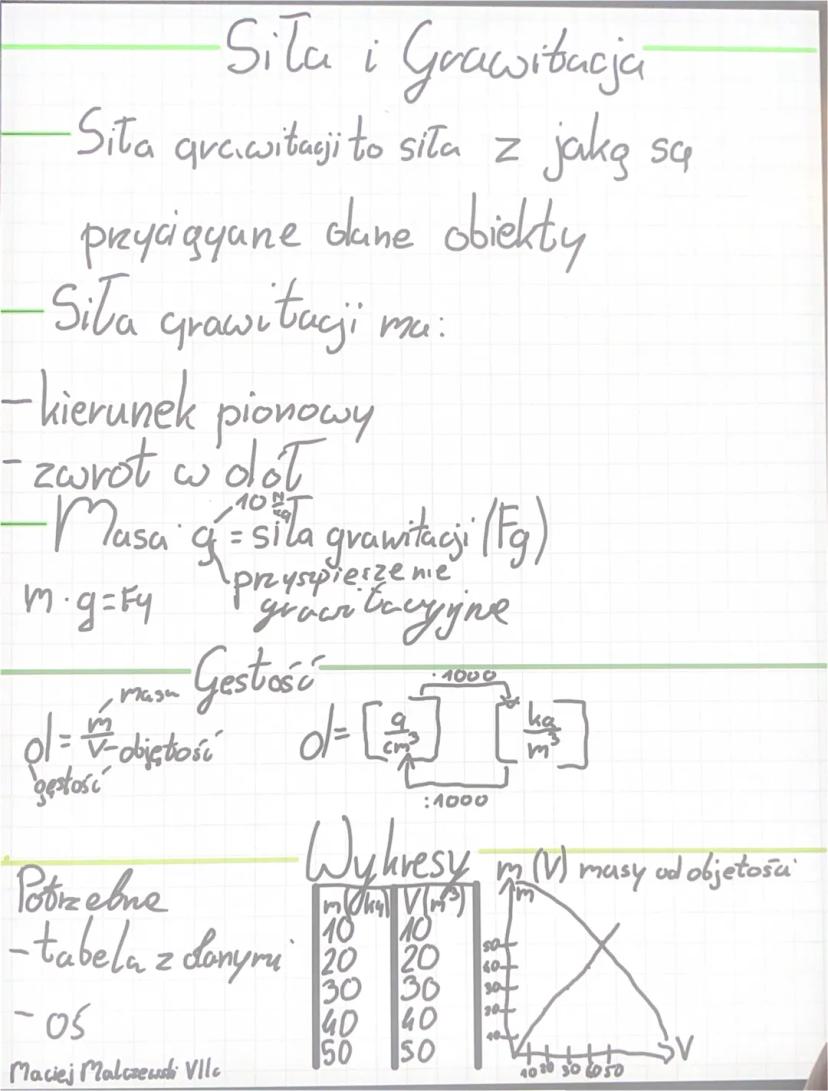 Siła i Grawitacja
Siła grawitacji to siła z jaką są
przyciągane dane obiekty
Siła grawitacji ma:
- kierunek pionowy
- zwrot w dół
10 N/kg
Masa · g = siła grawitacji (Fg)
przyspieszenie
grawitacyjne
m · g = Fg
Gęstość
masa
d = m/V - objętość
gęstość
d = [g/cm³] [kg/m³]
· 1000
: 1000
Wykresy
Potrzebne
- tabela z danymi
- oś
m (kg) V (m³)
10 10
20 20
30 30
40 40
50 50
m (V) masy od objętości
m
50
40
30
20
10
10 20 30 40 50
V
Maciej Malczewski VIIc